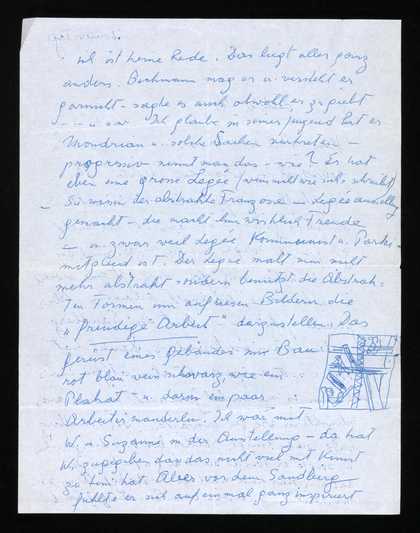 ich ist keine Rede. Das liegt alles ganz
anders. Beckmann mag er u. versteht er
garnicht - sagte er auch obwohl er zugiebt
Ich glaube in seiner Jugend hat er
Mondrian u. solche Sachen vertreten -
progressiv nennt man das - wie? Er hat
eben eine grosse Legée
So wenn der abstrakte Franzose - Legée austellung
gemacht - die macht ihm wirklich Freude
- u. zwar weil Legée, Kommunist u. Partei-
mitglied ist. Der Legée malt nun nicht
mehr abstrakt sondern benützt die Abstrak-
ten Formen um auf riesen Bildern die
„Freudige Arbeit" darzustellen. Das
gerüst eines Gebäudes im Bau
rot blau weiss schwarz, wie ein
Plakat - u. darin ein paar
Arbeitermännerln. Ich war mit
W. u. Suzanne in der Austellung - da hat
W. zugegeben das das nicht viel mit Kunst
zu tun hat. Aber vor dem Sandberg
fühlte er sich auf einmal ganz inspiriert